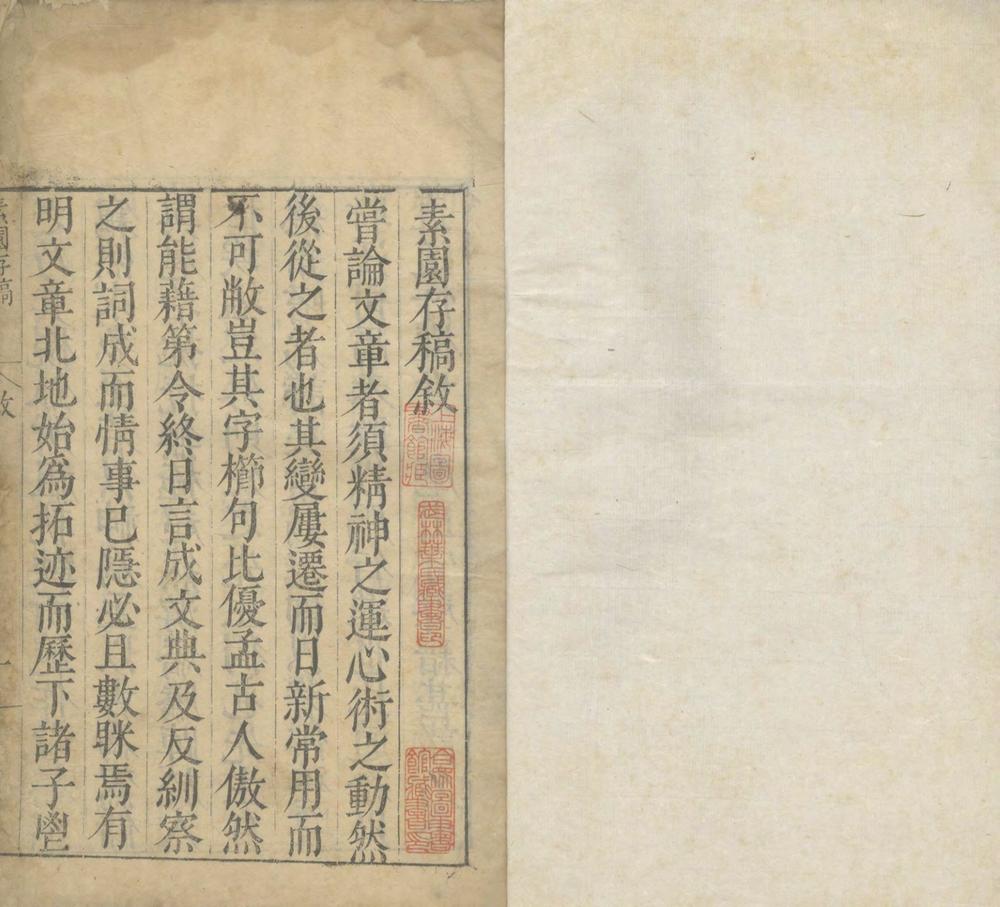 素園存稿敘
嘗論文章者須精神之運心術之動然
後從之者也其變屢遷而日新常用而
不可敝豈其字櫛句比優孟古人傲然
謂能藉第令終日言成文典及反紃察
之則詞成而情事已隱必且數眯焉有
明文章北地始為拓迹而歷下諸子鬯
素園存稿
敘
一
上海圖書館藏
武林葉氏藏書印
合衆圖書館藏書印